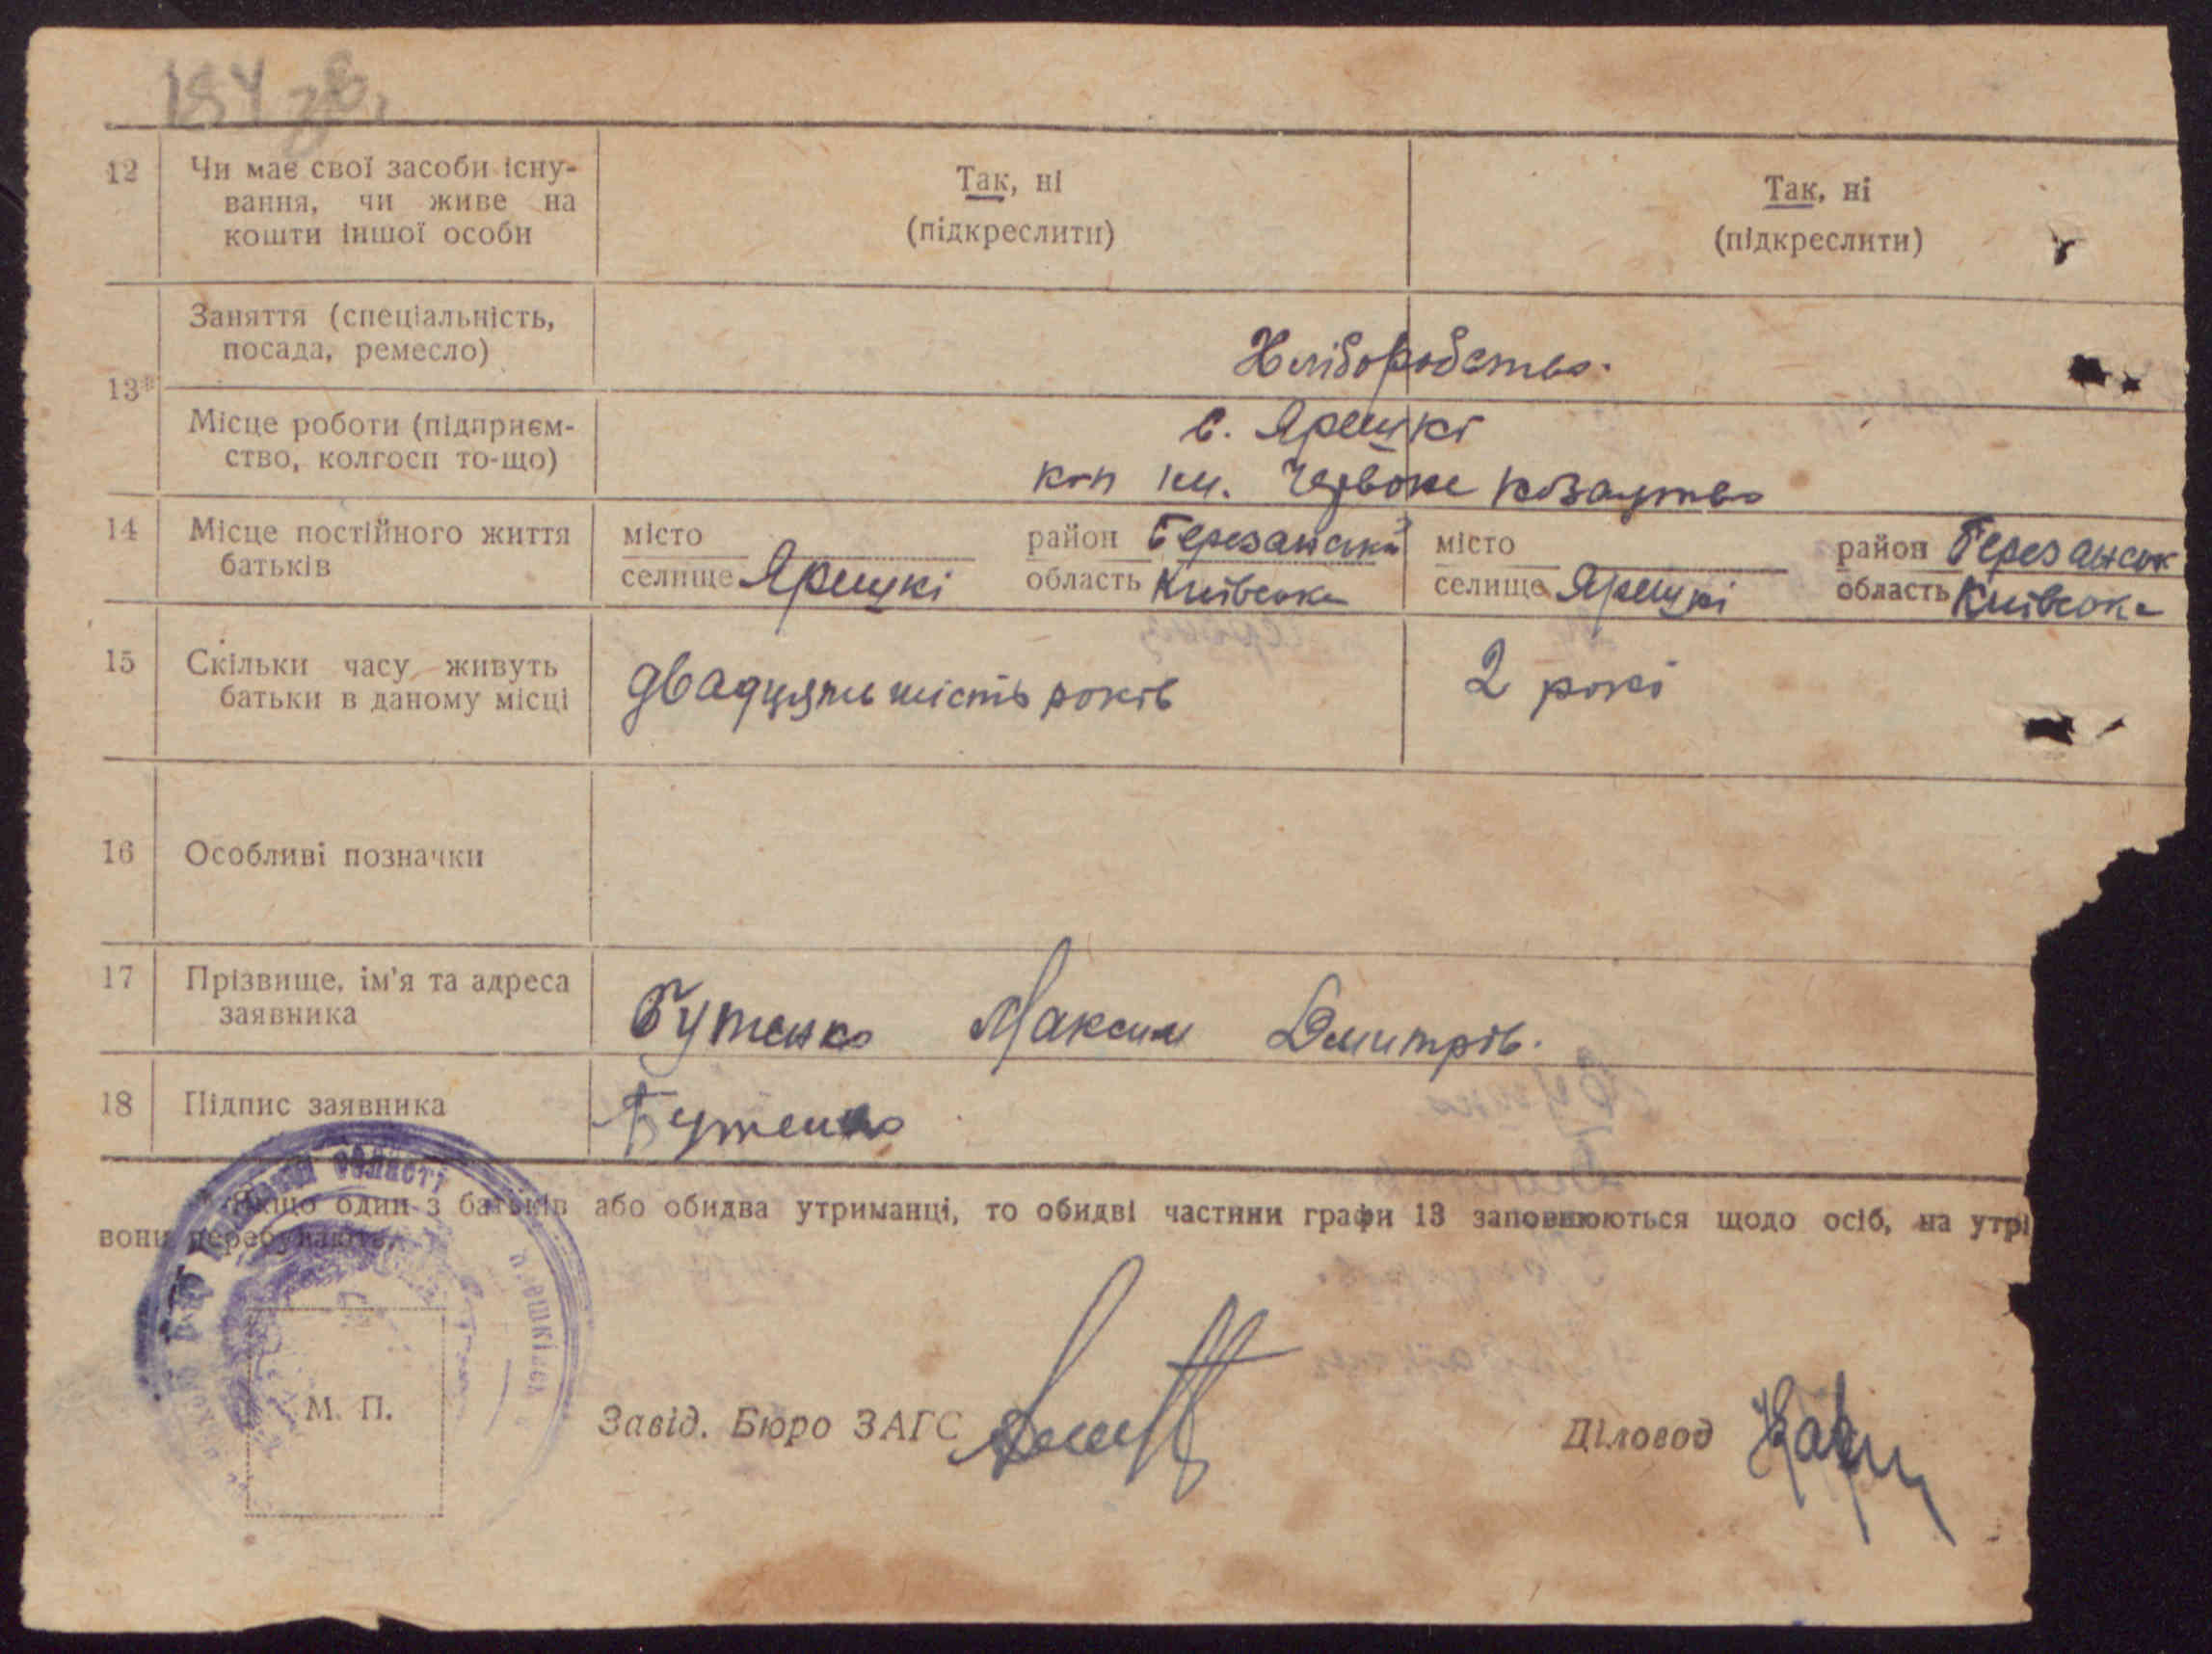 184 зв.
12 Чи має свої засоби існу-
вання, чи живе на
кошти іншої особи
Так, ні
(підкреслити)
Так, ні
(підкреслити)
13*
Заняття (спеціальність,
посада, ремесло)
Хліборобство.
Місце роботи (підприєм-
ство, колгосп то-що)
с. Ярешкі
кгп ім. Червоне козацтво
14 Місце постійного життя
батьків
місто
селище Ярешкі
район Березанський
область Київська
місто
селище Ярешкі
район Березанськ
область Київська
15 Скільки часу живуть
батьки в даному місці
двадцять шість років
2 рокі
16 Особливі позначки
17 Прізвище, ім'я та адреса
заявника
Бутенко Максим Дмитрів.
18 Підпис заявника
Бутенко
* Якщо один з батьків або обидва утриманці, то обидві частини графи 13 заповнюються щодо осіб, на утрі
вони перебувають.
області
М. П.
Завід. Бюро ЗАГС
Діловод